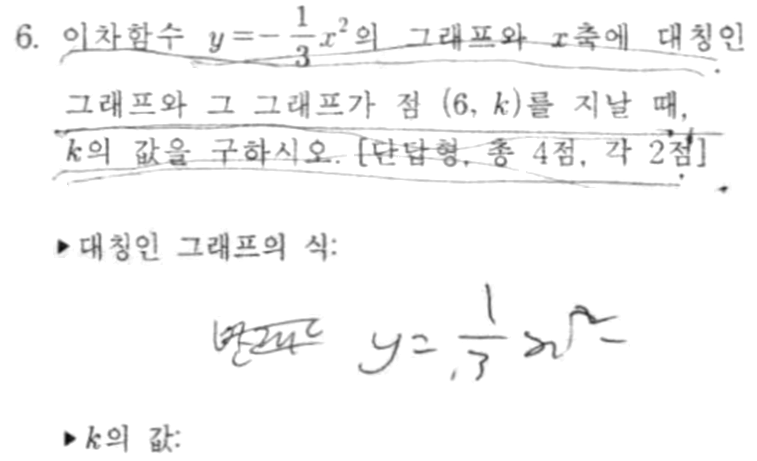 6. 이차함수 y=-1/3x²의 그래프와 x축에 대칭인
그래프와 그 그래프가 점 (6, k)를 지날 때,
k의 값을 구하시오. [단답형, 총 4점, 각 2점]
▶대칭인 그래프의 식:
y=1/3x²
▶k의 값: